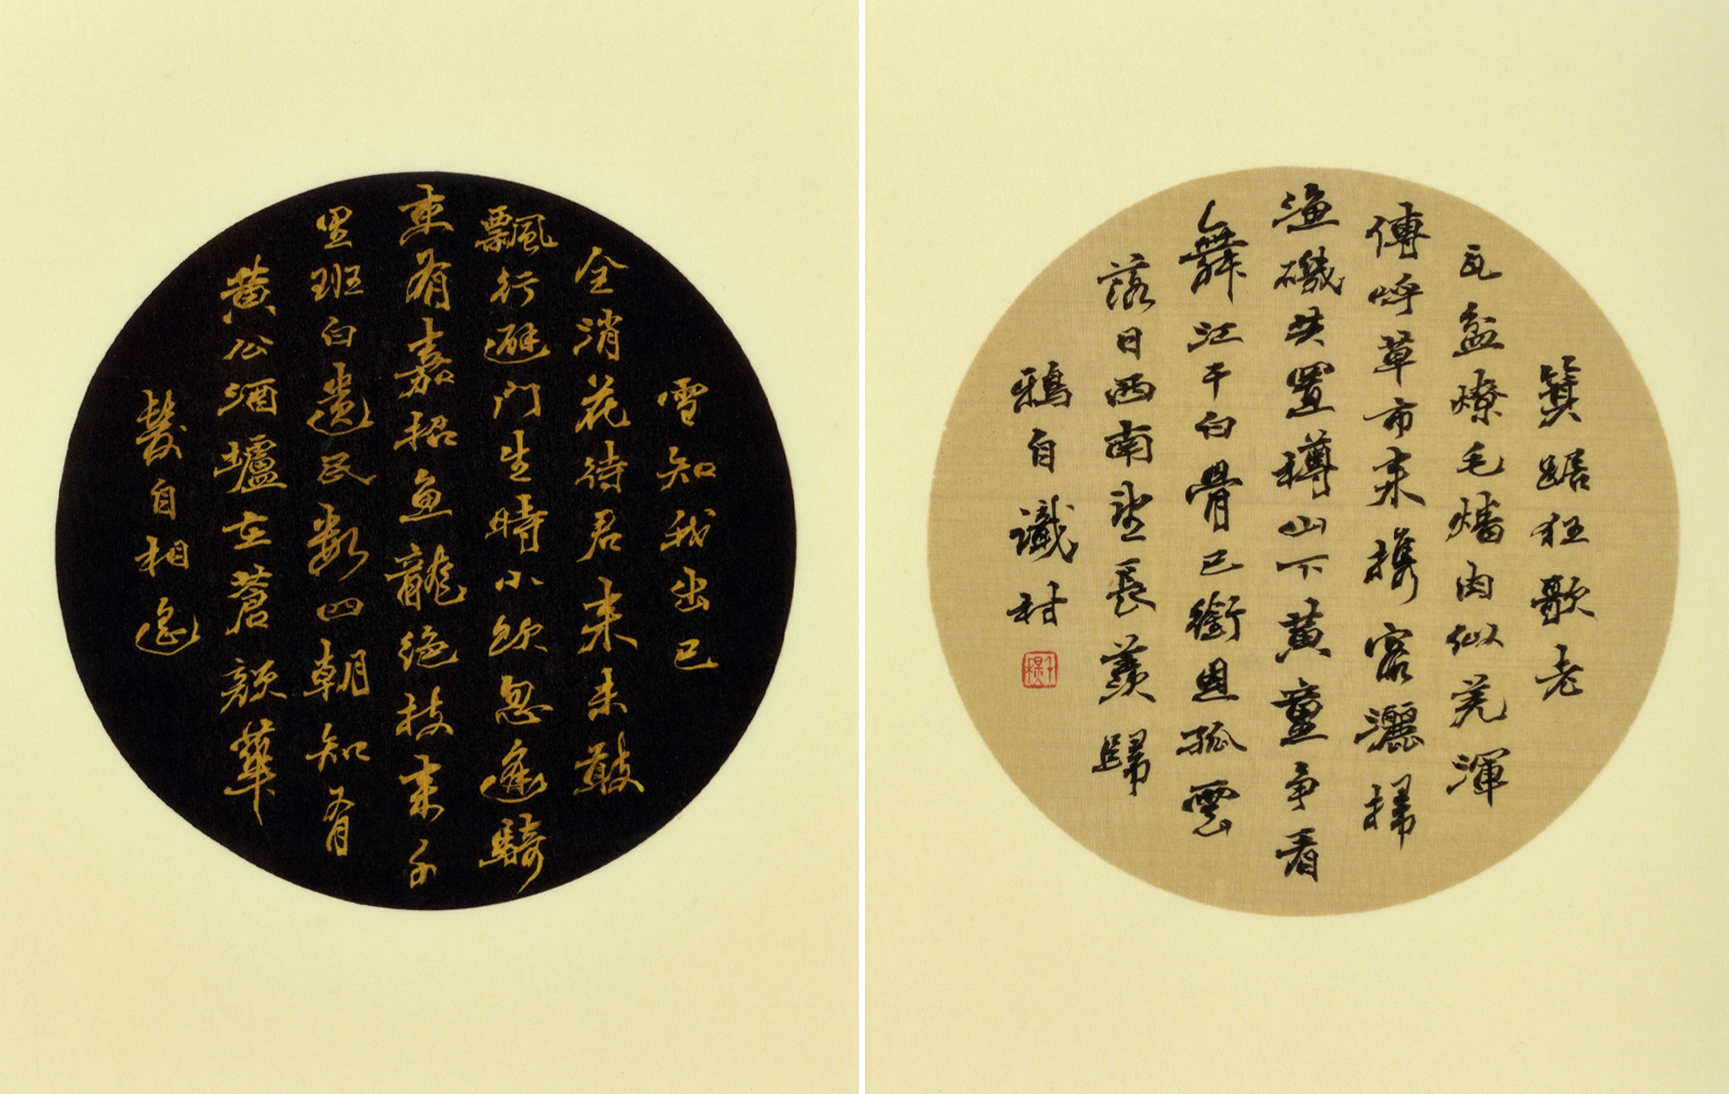 雪知我出已
全消花待君来未敢
飄行避门生時小飲忽逢騎
吏有嘉招魚龍絶技来千
里班白遺民數四朝知有
黄公酒壚在蒼顔華
髮自相遥
箕踞狂歌老
瓦盆燎毛燔肉似羌渾
傳呼草市来攜客灑掃
漁磯共置樽山下黄童争看
舞江干白骨已銜恩孤雲
落日西南望長羨歸
鴉自識村